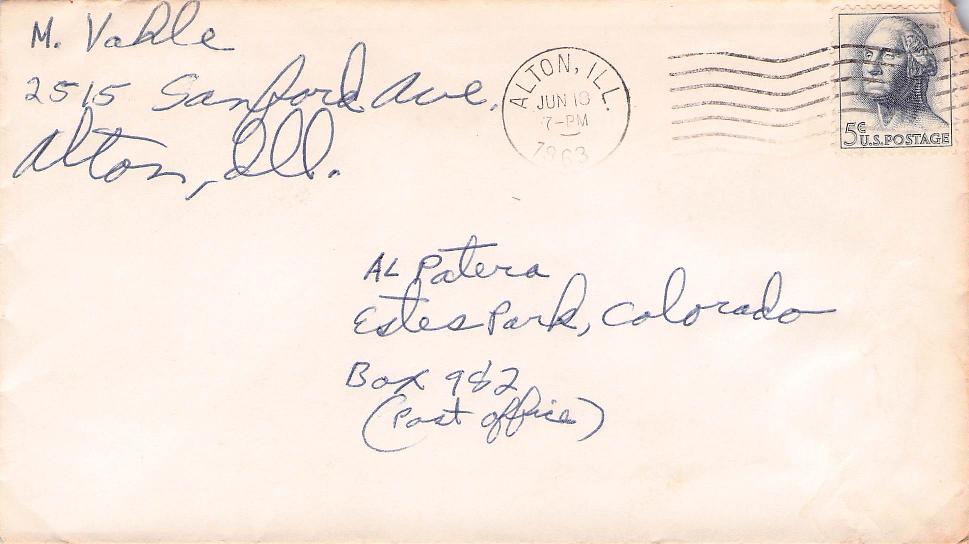 M. Vahle
2515 Sanford Ave.
Alton, Ill.
ALTON, ILL.
JUN 18
7-PM
1963
5¢ U.S. POSTAGE
AL Patera
Estes Park, Colorado
Box 982
(Post office)